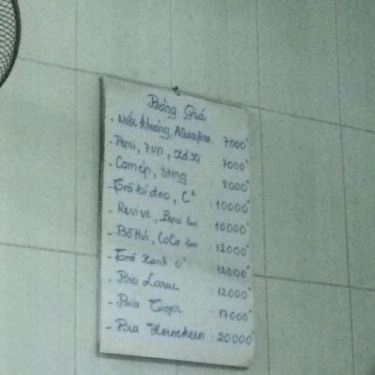 Bảng Giá
- Nước Khoáng, Aquafina. 7000đ
- Pepsi, 7up, xá xị 7000đ
- Cam ép, Sting 8000đ
- Trà bí đao, C² : 10000đ
- Revive, Pepsi lon 10000đ
- Bò Húc, CoCa lon 12000đ
- Trà Xanh 0° 12000đ
- Bia Larue : 12000đ
- Bia Tiger : 17000đ
- Bia Heineken : 20000đ